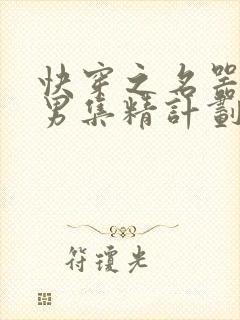 快穿之名器
男集精計劃
符瓊光